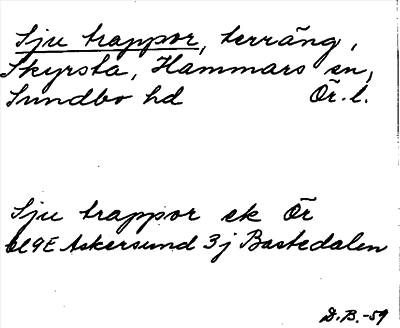 Sju trappor, terräng,
Skyrsta, Hammars sn,
Sundbo hd Ör. l.
Sju trappor ek Ör
bl 9E Askersund 3j Bastedalen
D.B.-59